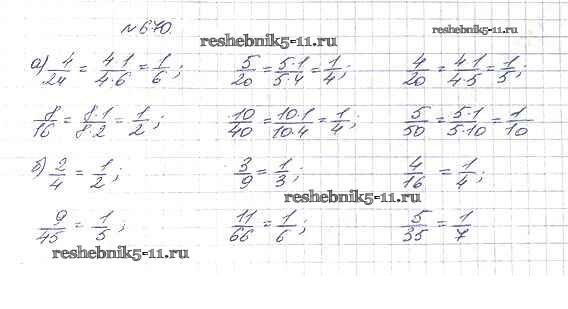 №670.
reshebnik5-11.ru
reshebnik5-11.ru
а) 4/24 = 4·1/4·6 = 1/6; 5/20 = 5·1/5·4 = 1/4; 4/20 = 4·1/4·5 = 1/5;
8/16 = 8·1/8·2 = 1/2; 10/40 = 10·1/10·4 = 1/4; 5/50 = 5·1/5·10 = 1/10
б) 2/4 = 1/2; 3/9 = 1/3; 4/16 = 1/4;
reshebnik5-11.ru
9/45 = 1/5; 11/66 = 1/6; 5/35 = 1/7
reshebnik5-11.ru